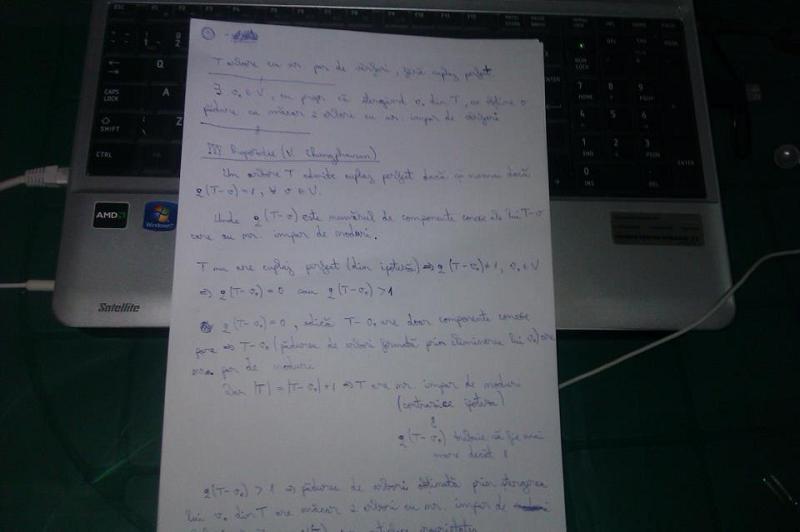 T arbore cu nr par de vârfuri, fără cuplaj perfect
∃ v₀ ∈ V, cu propr. că ștergând v₀ din T, se obține o
pădure cu măcar 2 arbori cu nr. impar de vârfuri
!!! Propoziție (V. Chungphaisan)
Un arbore T admite cuplaj perfect dacă și numai dacă
q(T-v)=1, ∀ v ∈ V.
Unde q(T-v) este numărul de componente conexe ale lui T-v
care au nr. impar de noduri.
T nu are cuplaj perfect (din ipoteză) ⇒ q(T-v₀)≠1, v₀ ∈ V
⇒ q(T-v₀)=0 sau q(T-v₀)>1
q(T-v₀)=0, adică T-v₀ are doar componente conexe
pare ⇒ T-v₀ (pădurea de arbori formată prin eliminarea lui v₀) are
par de noduri
Dar |T|=|T-v₀|+1 ⇒ T are nr. impar de noduri
(contrazice ipoteza)
q(T-v₀) trebuie să fie mai
mare decât 1
q(T-v₀)>1 ⇒ pădurea de arbori obținută prin ștergerea
lui v₀ din T are măcar 2 arbori cu nr. impar de noduri
Q
CAPS LOCK
A
SHIFT
Z
CTRL
ENTER
AMD
Windows 7
Satellite